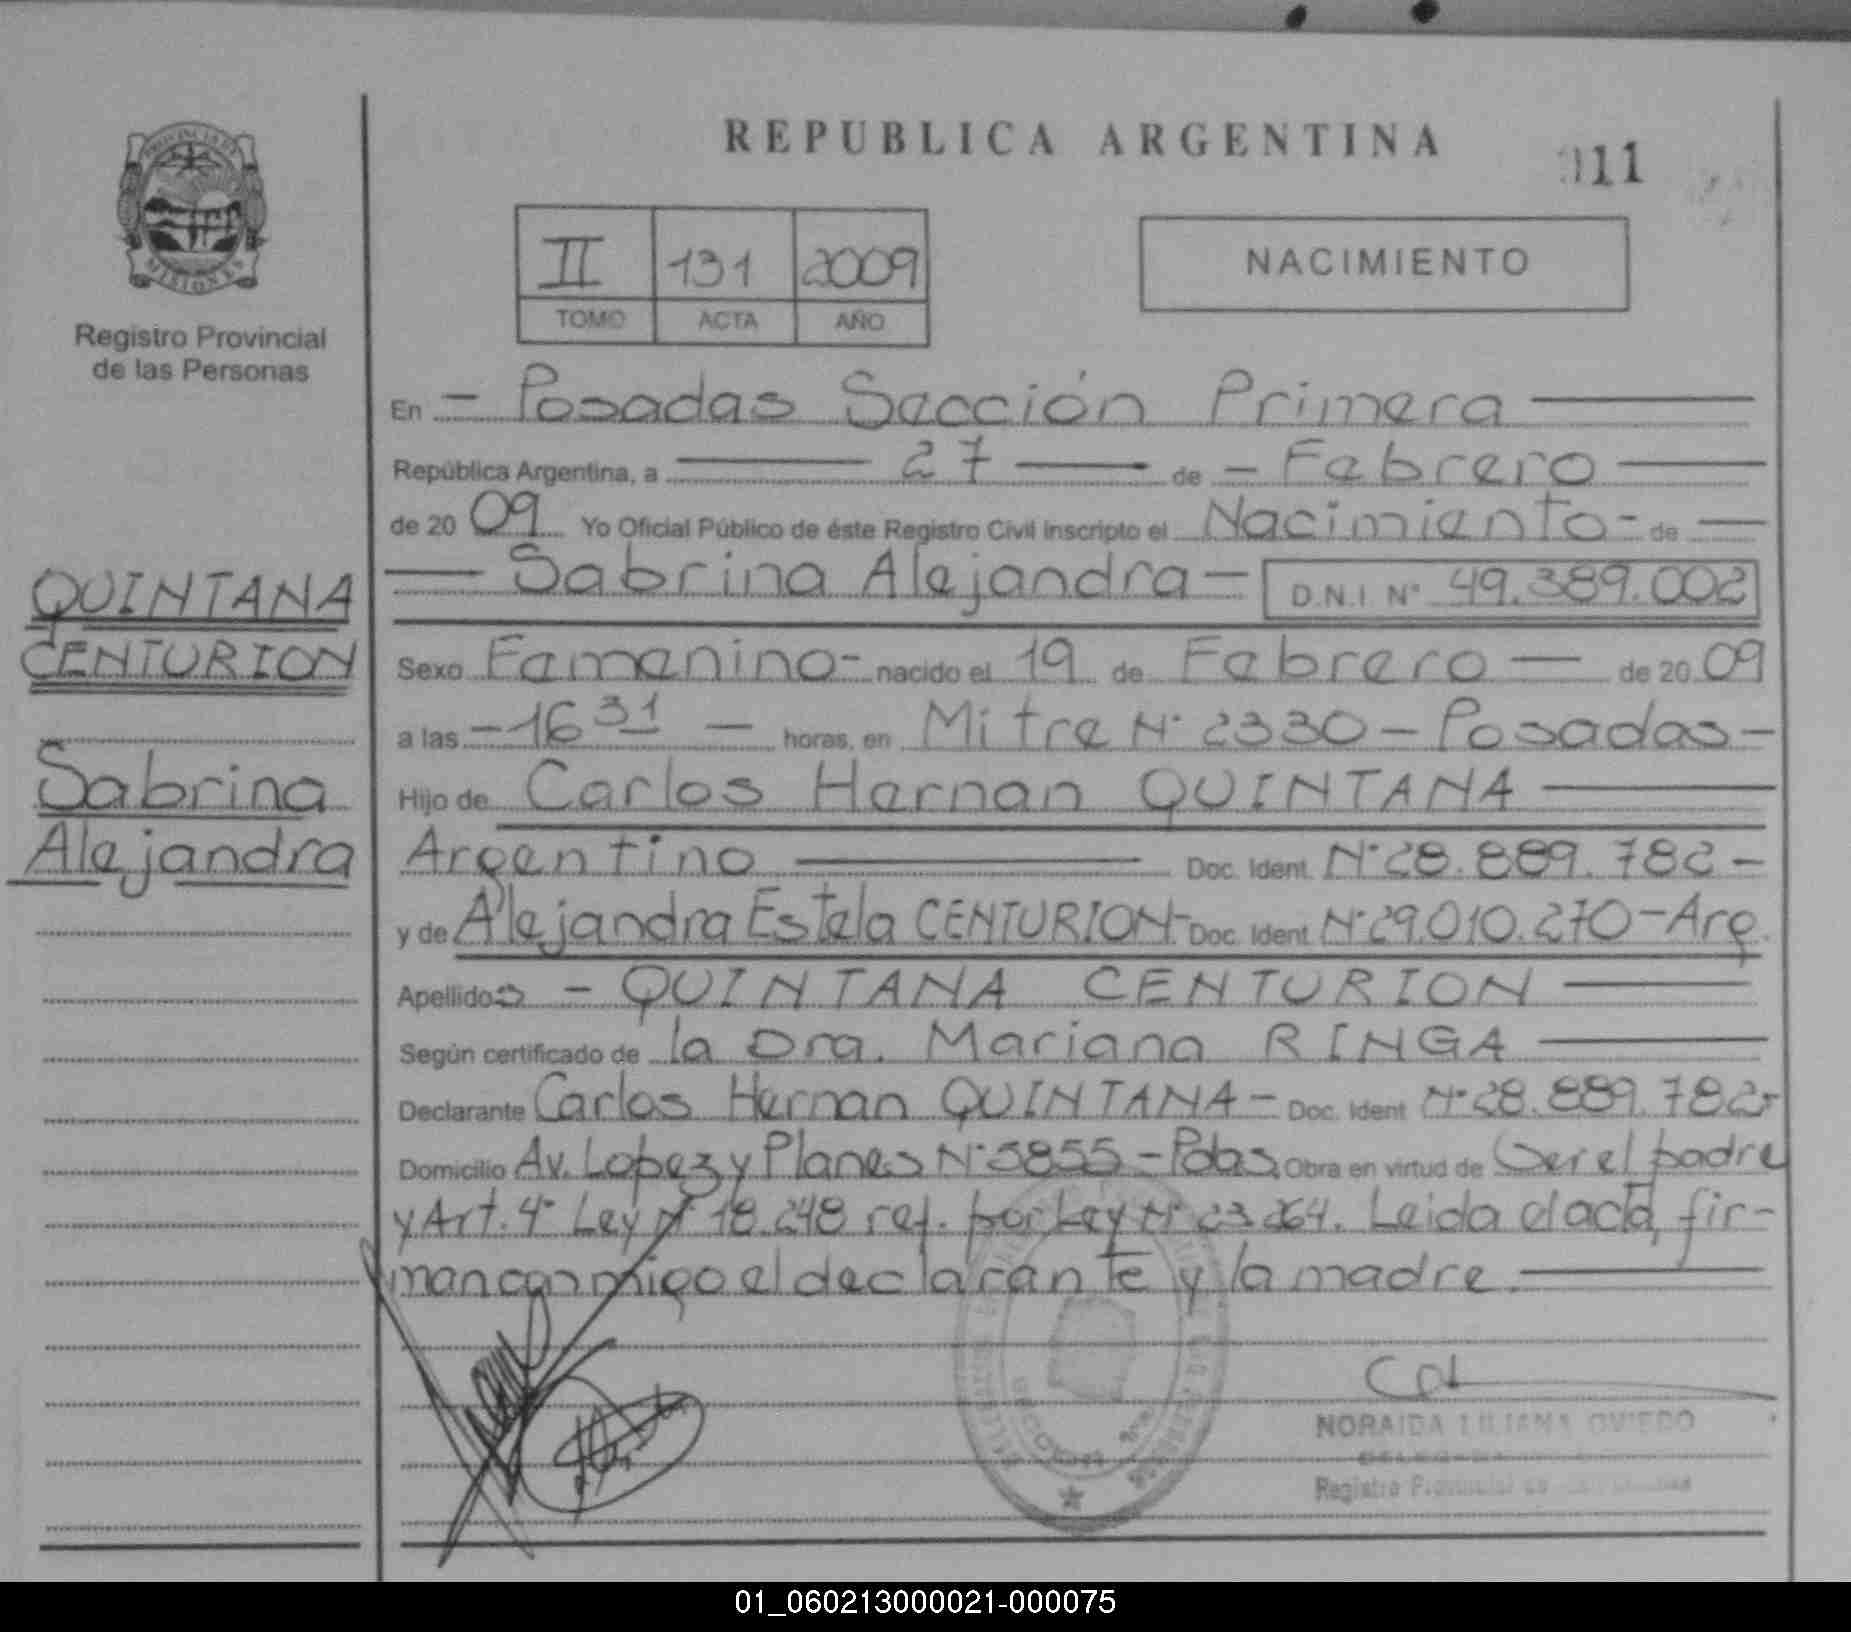 REPUBLICA ARGENTINA
011
PROVINCIA DE
MISIONES
Registro Provincial
de las Personas
II 131 2009
TOMO ACTA AÑO
NACIMIENTO
En - Posadas Sección Primera
República Argentina, a 27 de - Febrero
de 20 09 Yo Oficial Público de éste Registro Civil inscripto el Nacimiento - de
Sabrina Alejandra - D.N.I. Nº 49.389.002
QUINTANA
CENTURION
Sabrina
Alejandra
Sexo Femenino - nacido el 19 de Febrero de 20 09
a las - 16 31 - horas, en Mitre Nº 2330 - Posadas -
Hijo de Carlos Hernan QUINTANA
Argentino Doc. Ident. Nº 28.889.782 -
y de Alejandra Estela CENTURION - Doc. Ident. Nº 29.010.270 - Arg.
Apellidos - QUINTANA CENTURION
Según certificado de la Dra. Mariana RINGA
Declarante Carlos Hernan QUINTANA - Doc. Ident. Nº 28.889.782 -
Domicilio Av. Lopez y Planes Nº 5855 - Pdas. Obra en virtud de Ser el padre
y Art. 4º Ley Nº 18.248 ref. por Ley Nº 23.264. Leida el acta, fir-
man conmigo el declarante y la madre.
NORAIDA LILIANA OVIEDO
Registro Provincial de
01_060213000021-000075